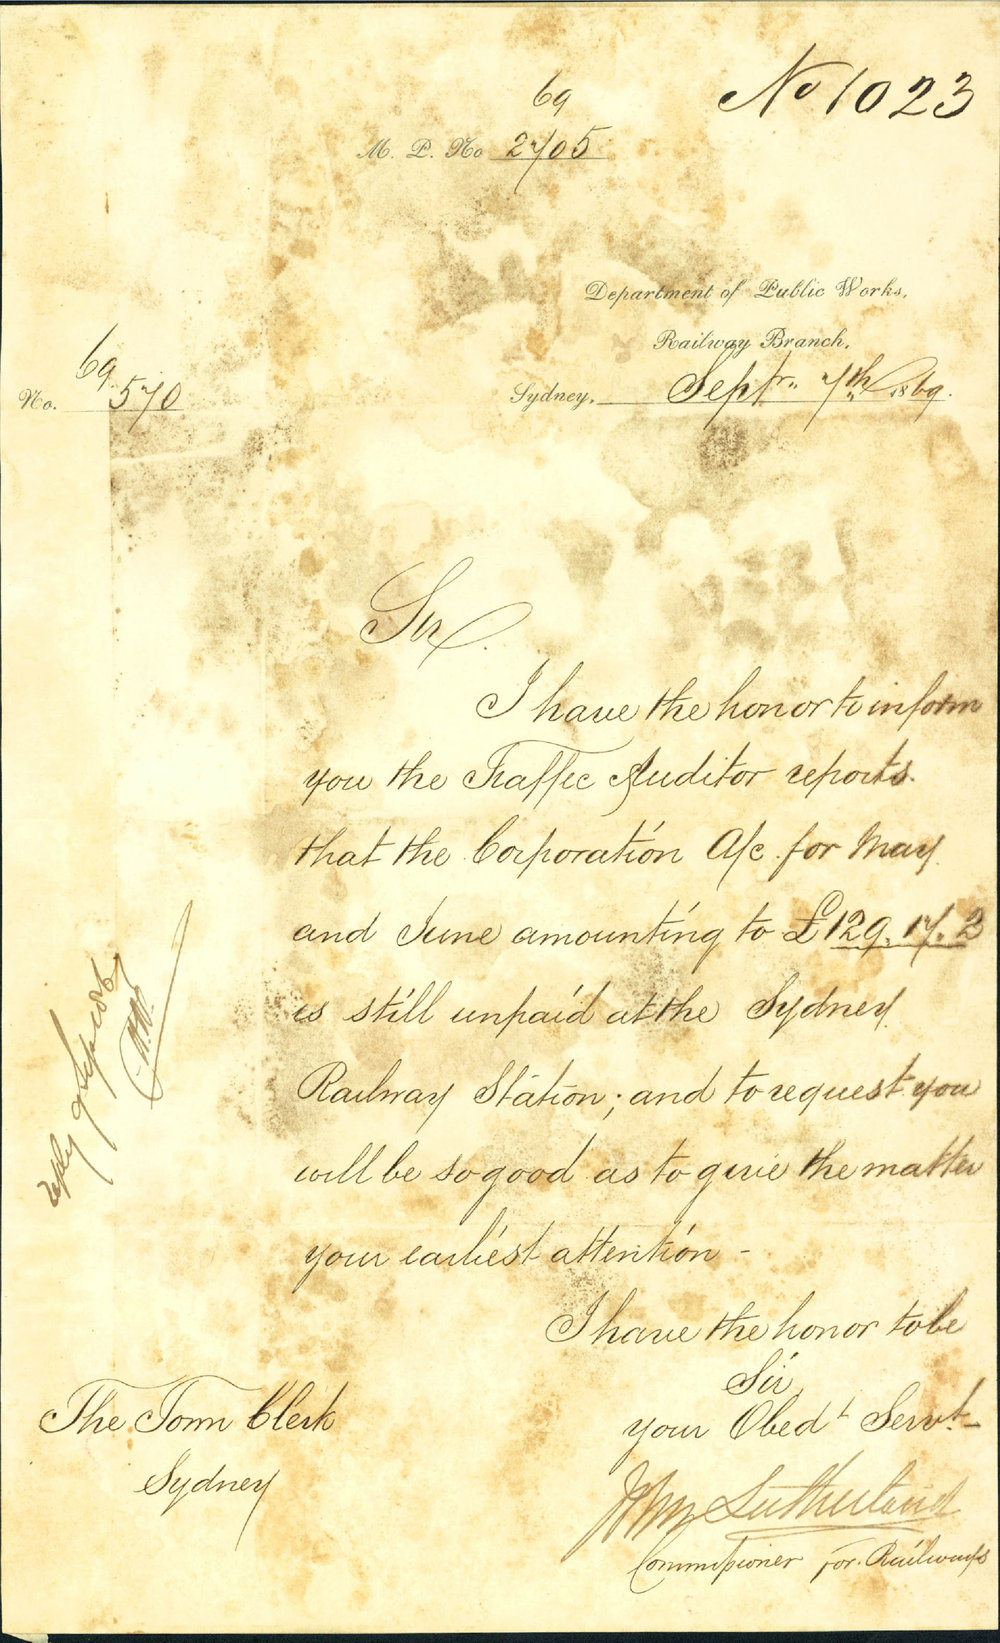 No 1023
69
M. P. No 2705
Department of Public Works,
Railway Branch,
69
No. 570
Sydney, Septr. 7th 1869.
Sir
I have the honor to inform
you the Traffic Auditor reports
that the Corporation A/c for May
and June amounting to £129.17.2
is still unpaid at the Sydney
Railway Station; and to request you
will be so good as to give the matter
your earliest attention -
I have the honor to be
Sir
your Obedt Servt
John Sutherland
Commissioner for Railways
The Town Clerk
Sydney
reply 9 Sep